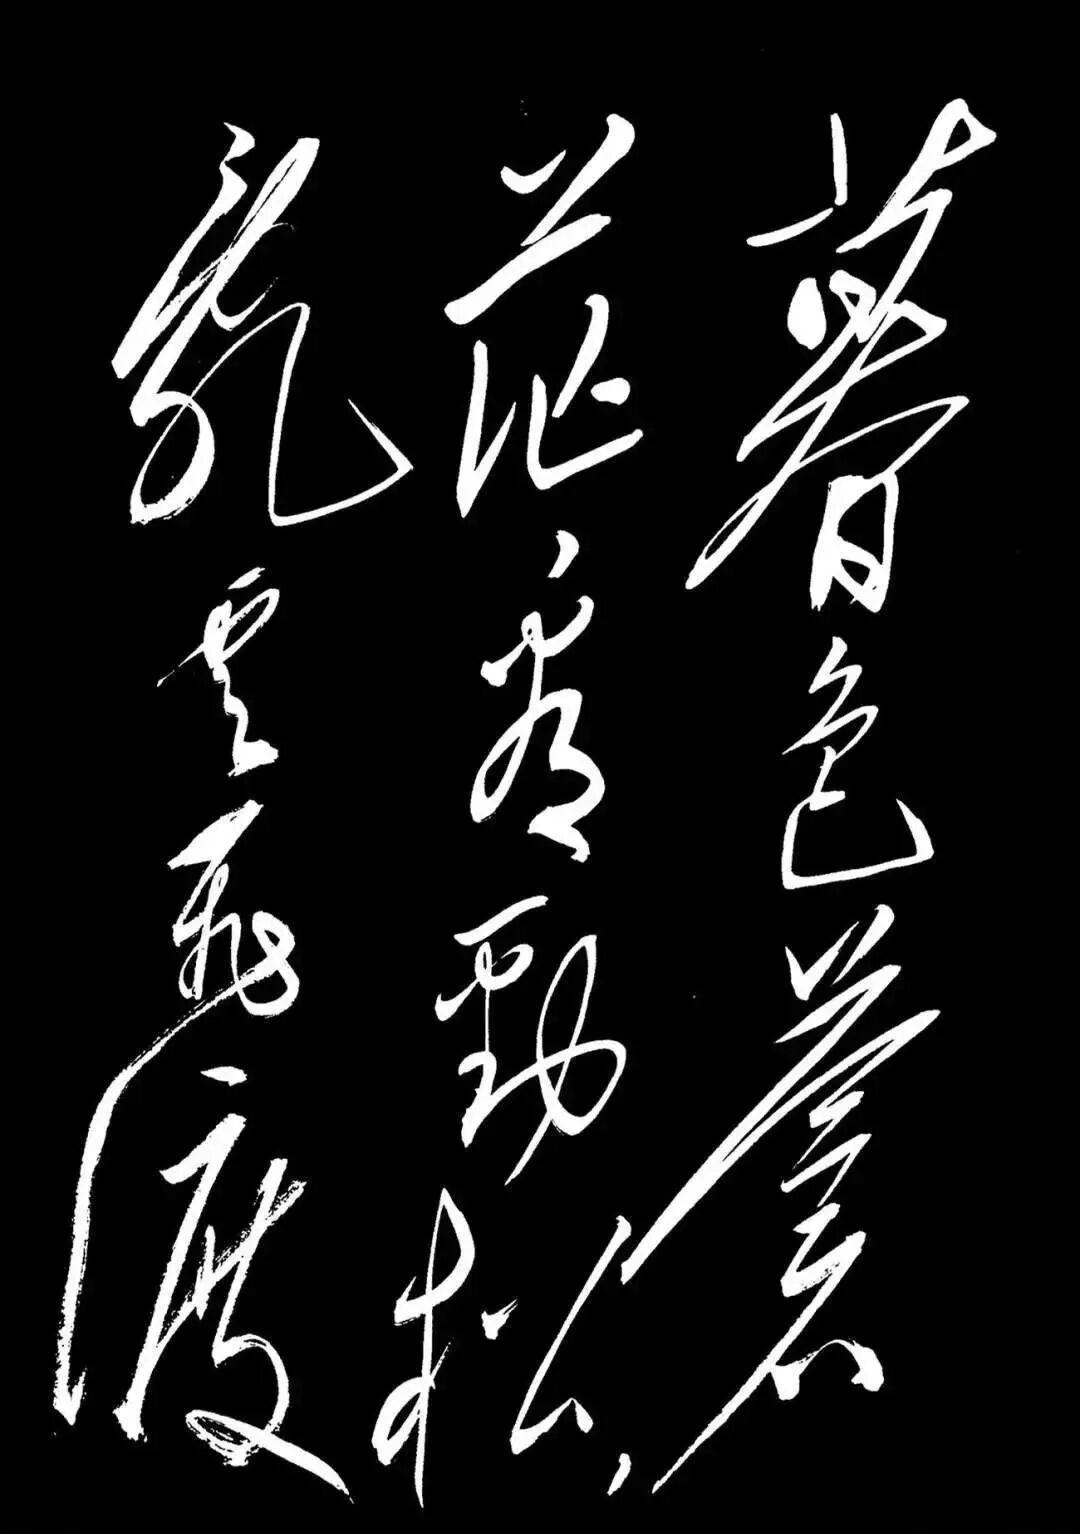 暮色苍
茫看劲松，
乱云飞渡